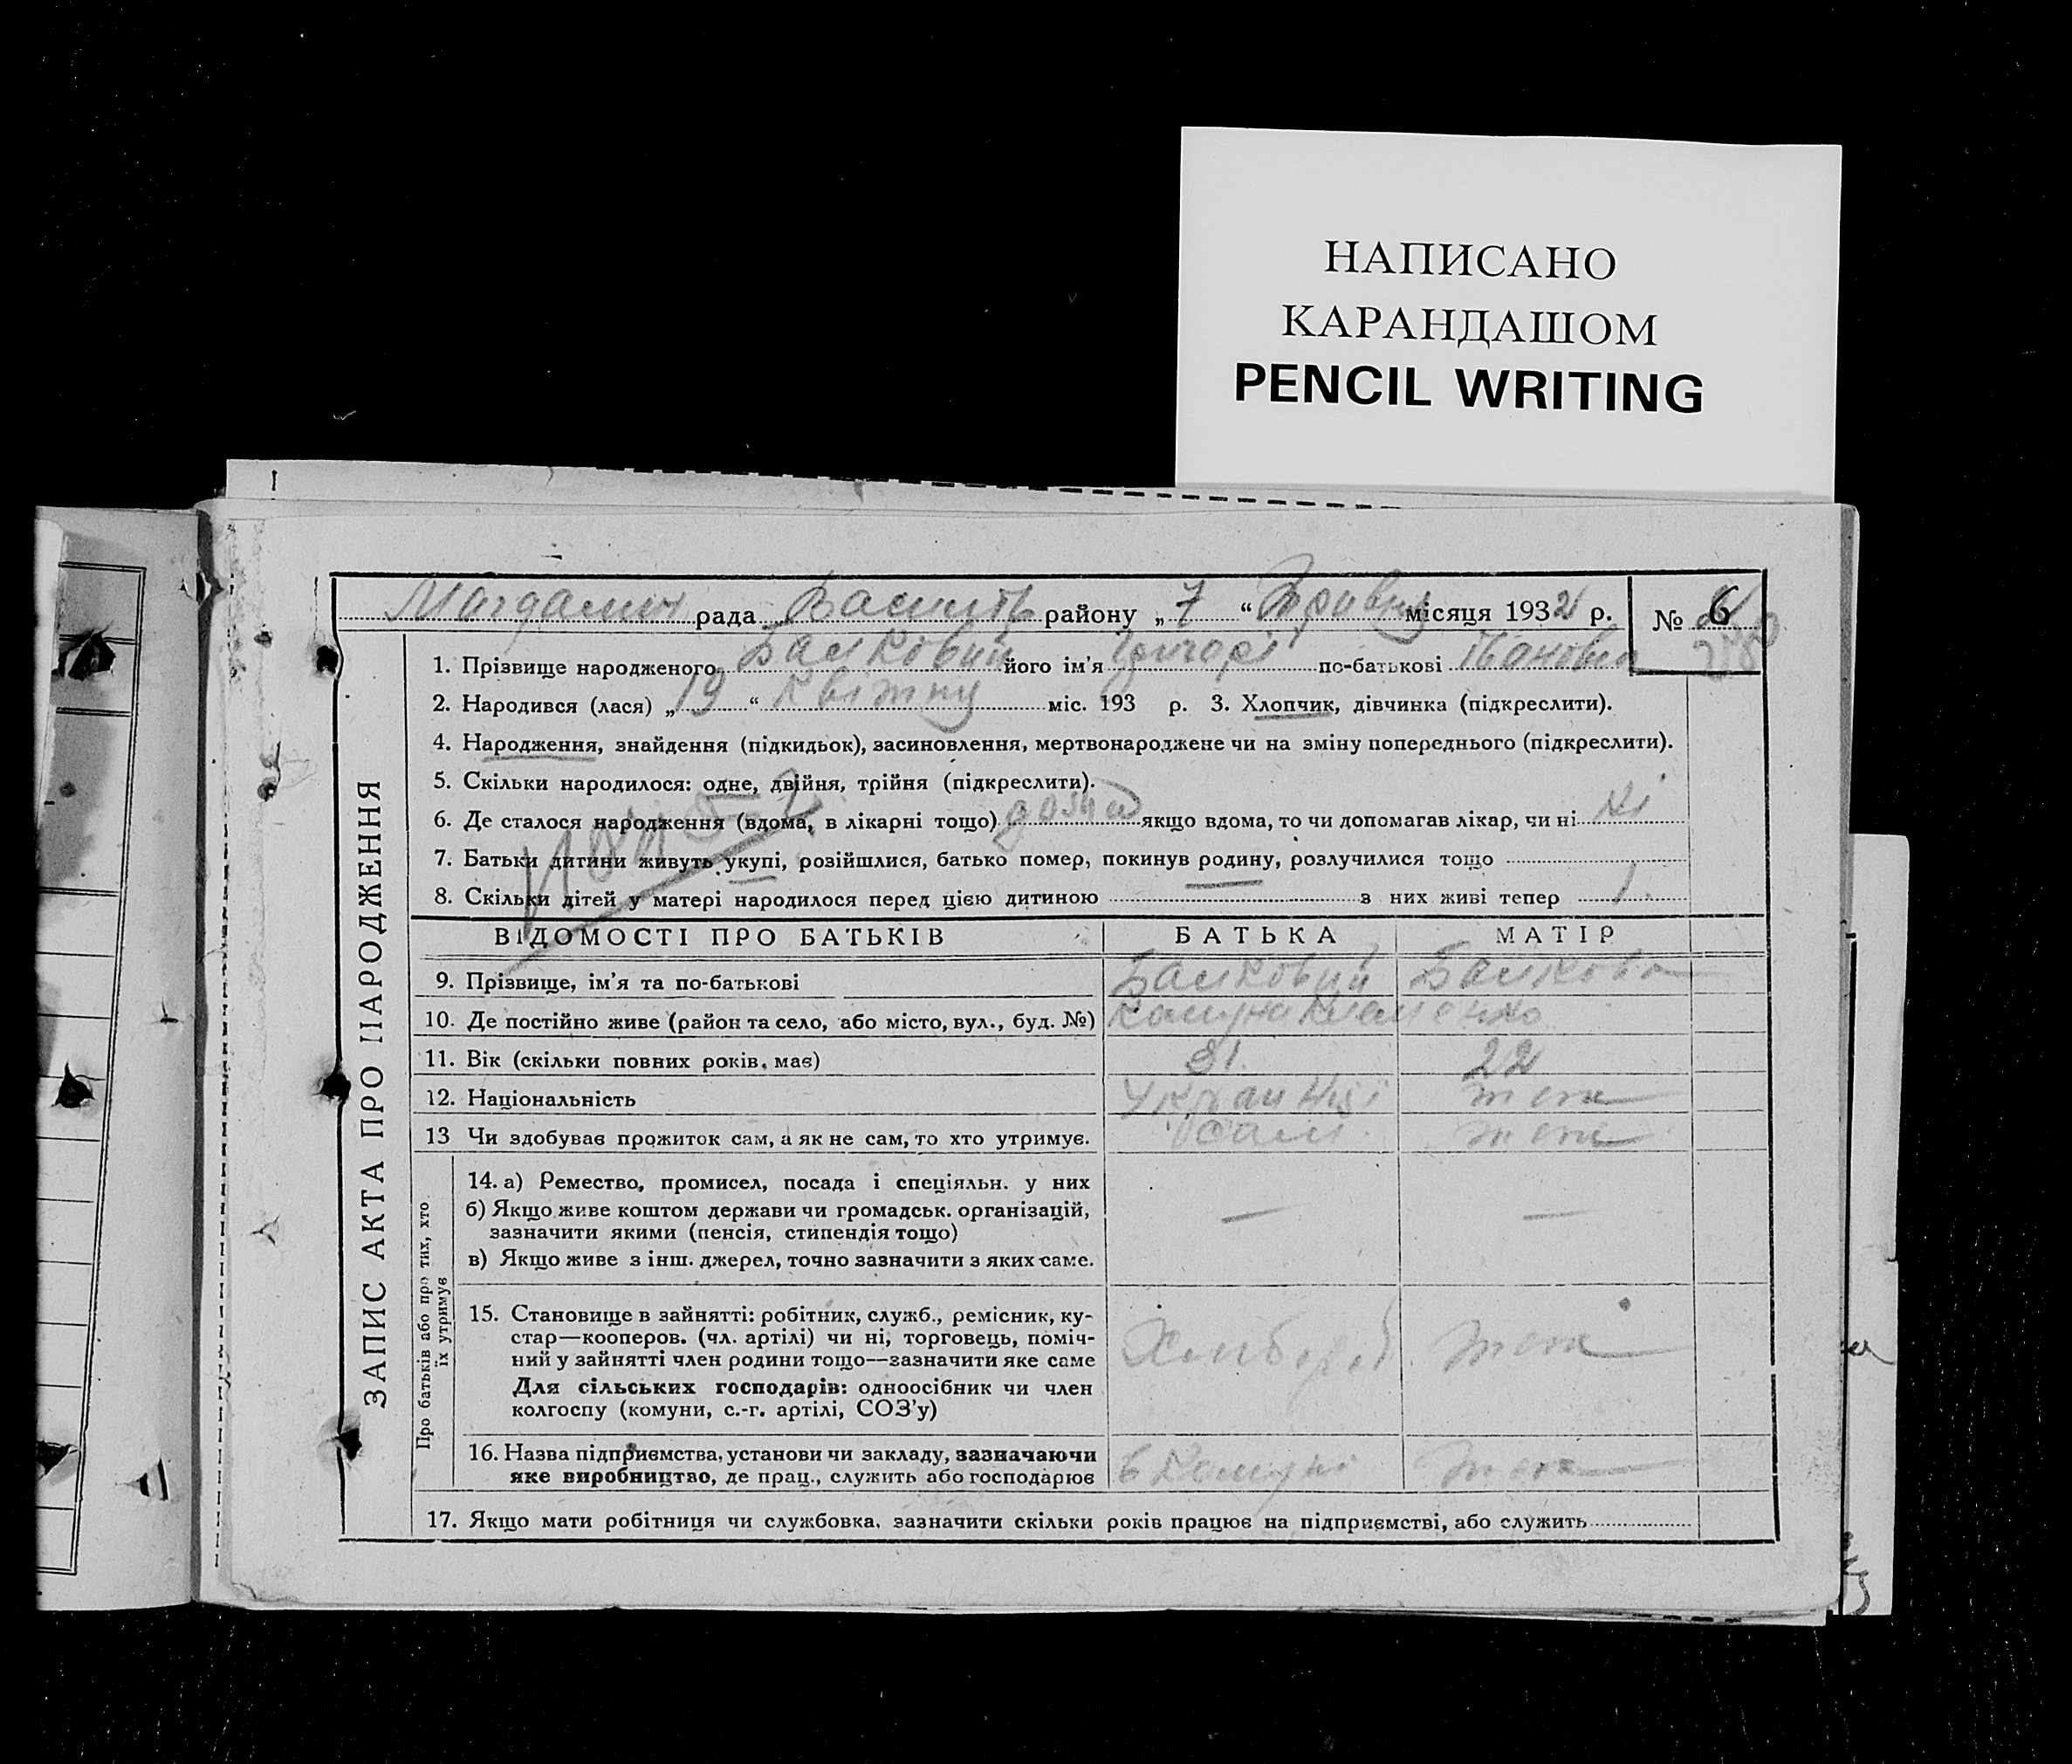 НАПИСАНО
КАРАНДАШОМ
PENCIL WRITING
рада району „ 7 “ Травня місяця 1932 р. № 6
1. Прізвище народженого його ім'я Григорі по-батькові Іванович
2. Народився (лася) „ 19 “ квітня міс. 193 р. 3. Хлопчик, дівчинка (підкреслити).
4. Народження, знайдення (підкидьок), засиновлення, мертвонароджене чи на зміну попереднього (підкреслити).
5. Скільки народилося: одне, двійня, трійня (підкреслити).
6. Де сталося народження (вдома, в лікарні тощо) дома якщо вдома, то чи допомагав лікар, чи ні ні
7. Батьки дитини живуть укупі, розійшлися, батько помер, покинув родину, розлучилися тощо
8. Скільки дітей у матері народилося перед цією дитиною — з них живі тепер 1
ЗАПИС АКТА ПРО НАРОДЖЕННЯ
ВІДОМОСТІ ПРО БАТЬКІВ БАТЬКА МАТІР
9. Прізвище, ім'я та по-батькові
10. Де постійно живе (район та село, або місто, вул., буд. №)
11. Вік (скільки повних років має) 31 22
12. Національність теж
13 Чи здобуває прожиток сам, а як не сам, то хто утримує. сам теж
Про батьків або про тих, хто їх утримує
14. а) Ремество, промисел, посада і спеціяльн. у них
б) Якщо живе коштом держави чи громадськ. організацій,
зазначити якими (пенсія, стипендія тощо) — —
в) Якщо живе з інш. джерел, точно зазначити з яких саме.
15. Становище в зайнятті: робітник, служб., ремісник, ку-
стар—кооперов. (чл. артілі) чи ні, торговець, поміч-
ний у зайнятті член родини тощо—зазначити яке саме
Для сільських господарів: одноосібник чи член
колгоспу (комуни, с.-г. артілі, СОЗ'у)
Хлібороб теж
16. Назва підприємства, установи чи закладу, зазначаючи
яке виробництво, де прац., служить або господарює
в Комуні теж
17. Якщо мати робітниця чи службовка, зазначити скільки років працює на підприємстві, або служить